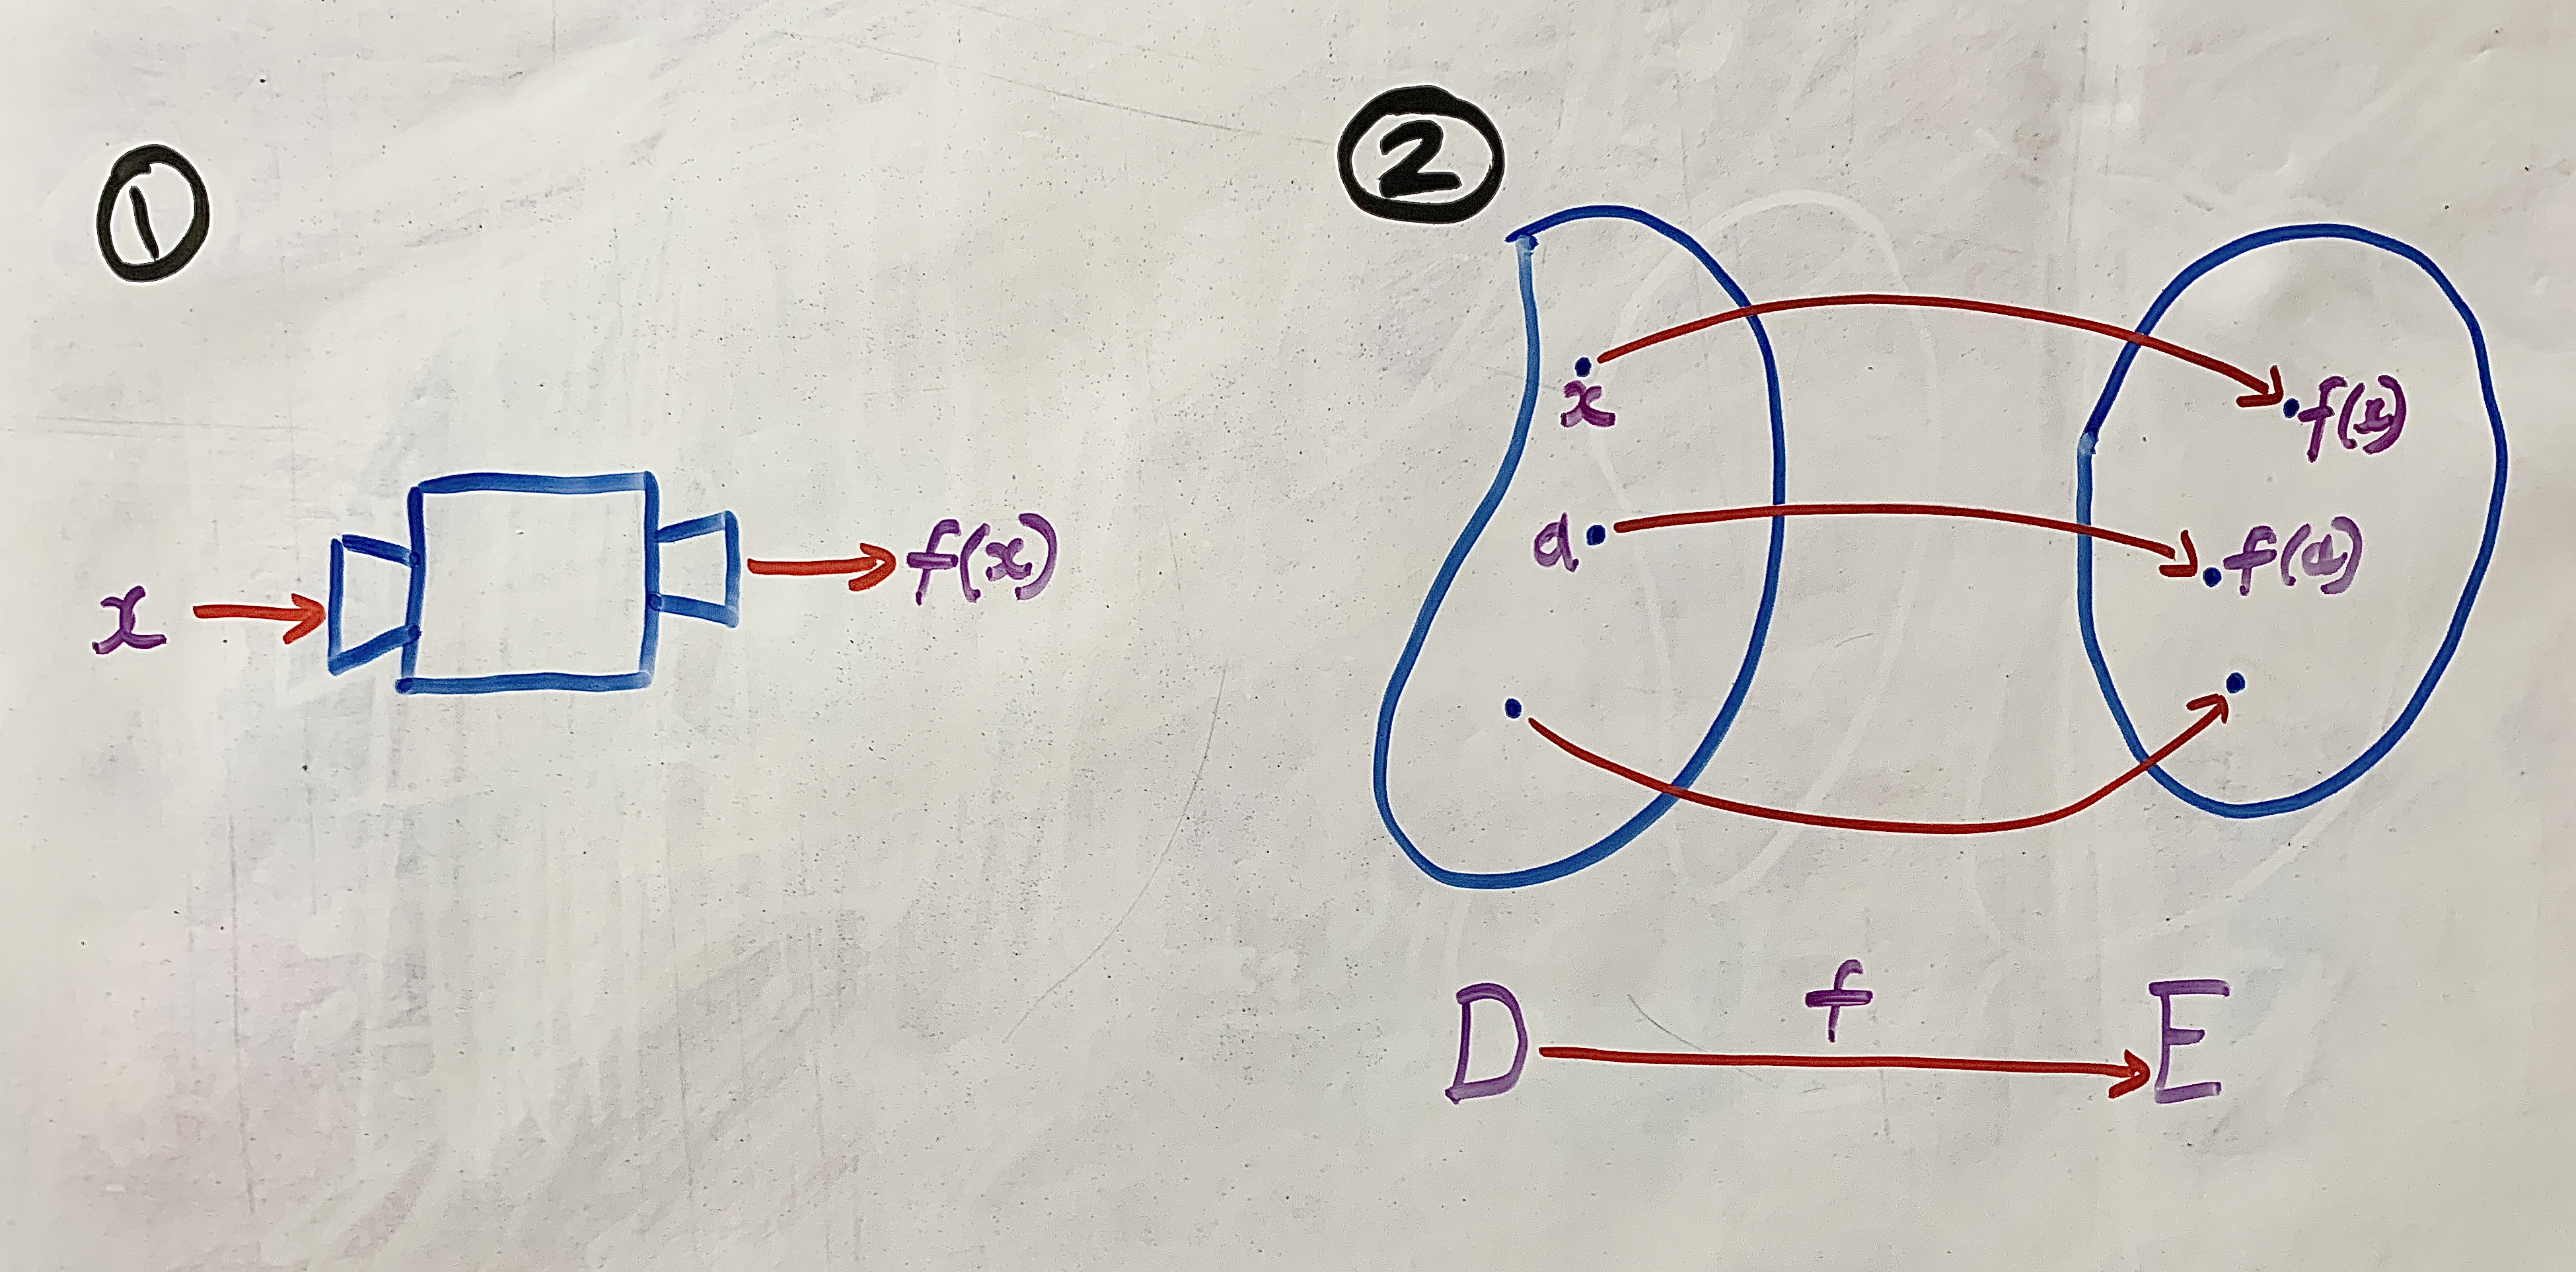 1
x f(x)
2
x f(x)
a f(a)
f
D E